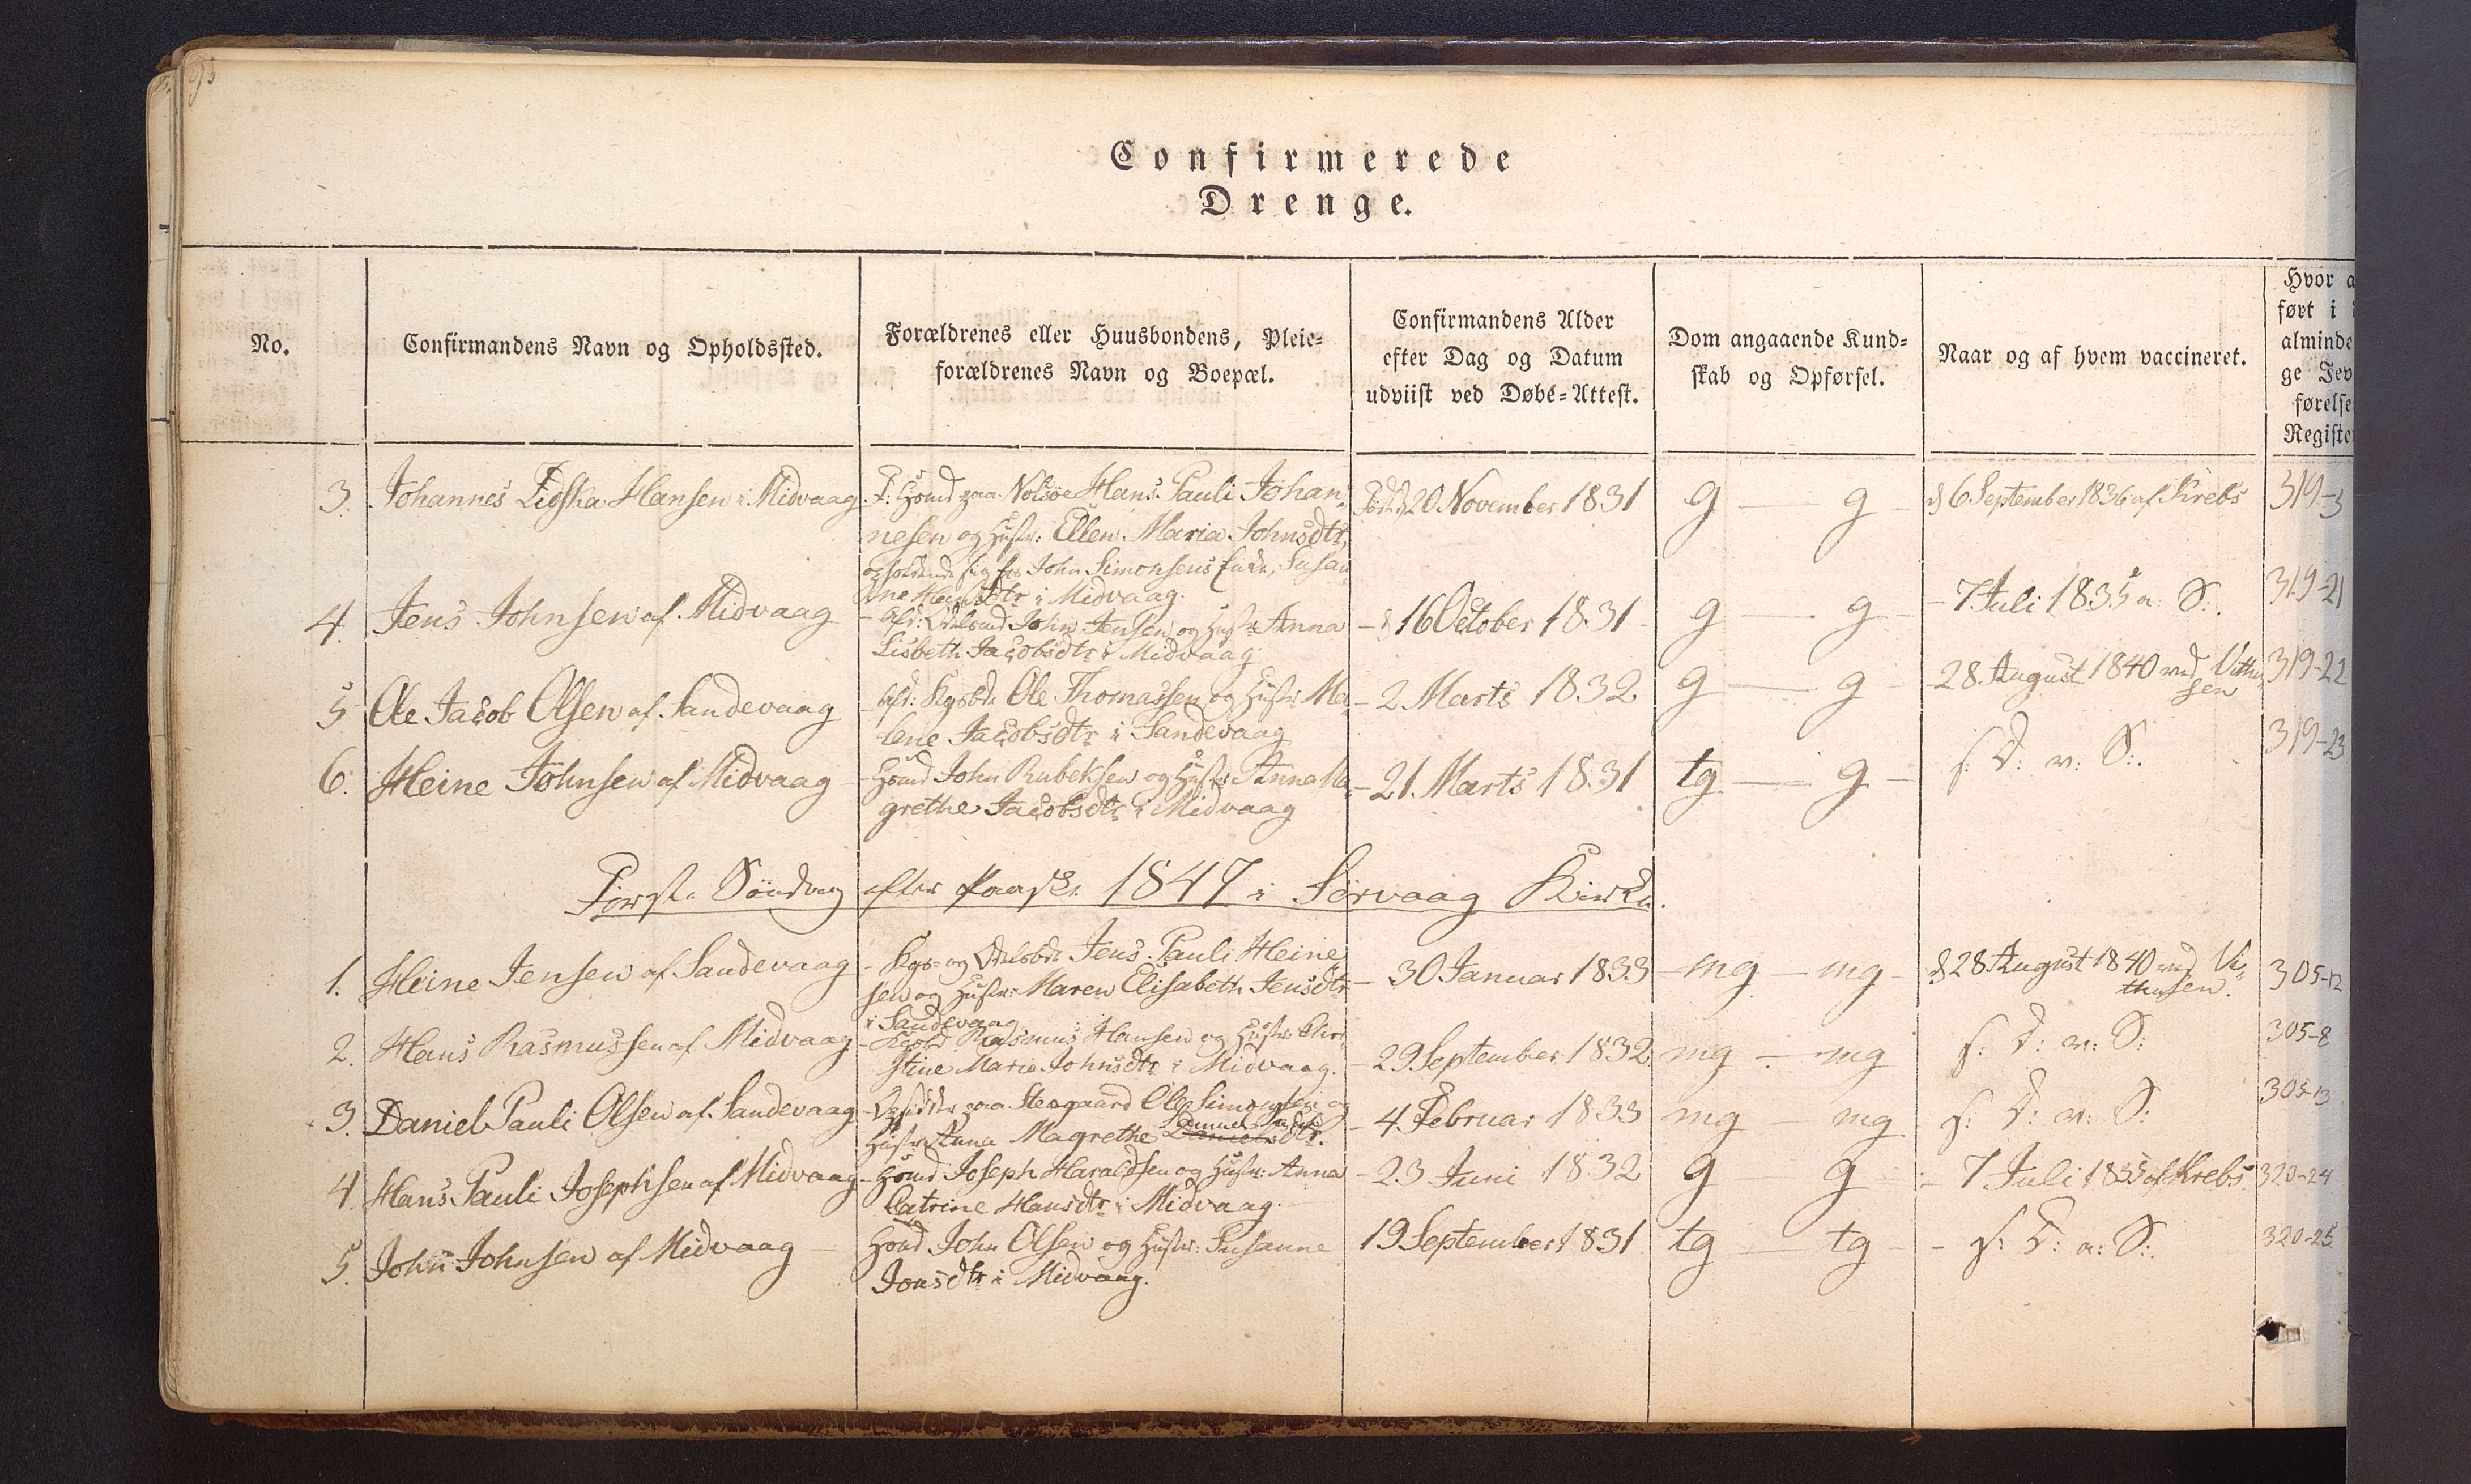 93
Confirmerede
Drenge.
No.
Confirmandens Navn og Opholdssted.
Forældrenes eller Huusbondens, Pleie=
forældrenes Navn og Boepæl.
Confirmandens Alder
efter Dag og Datum
udviist ved Døbe=Attest.
Dom angaaende Kund=
skab og Opførsel.
Naar og af hvem vaccineret.
Hvor a
ført i
alminde
ge Jev
førelse
Registe
3. Johannes Hansen i Midvaag
F: Hømd paa Nolsøe Hans Pauli Johan
nesen og Hustr: Ellen Maria Johnsdtr,
opholdende sig hos John Simonsens Enke, Susan
ne i Midvaag.
20 November 1831
g — g
d 6 September 1836 af Krebs
319-3
4. Jens Johnsen af Midvaag
- afd: John Jensen og Hustr: Anna
Lisbeth Jacobsdtr i Midvaag
- d 16 October 1831
g — g
- 7 Juli 1835 a: S:.
319-21
5 Ole Jacob Olsen af Sandevaag
- afd: Kgsbd: Ole Thomassen og Hustr: Ma
lene Jacobsdtr i Sandevaag
- 2 Marts 1832
g — g
28 August 1840 ved Vithu
sen
319-22
6. Heine Johnsen af Midvaag
- Hømd John Rubeksen og Hustr: Anna Ma
grethe Jacobsdtr i Midvaag
- 21. Marts 1831
tg — g
s: D: v: S:.
319-23
Første Søndag efter Paaske 1847 i Sørvaag Kirke.
1. Heine Jensen af Sandevaag
- Kgs= og Odelsbd: Jens Pauli Heine
sen og Hustr: Maren Elisabeth Jensdtr
i Sandevaag
- 30 Januar 1833
mg — mg
d 28 August 1840 ved Vi=
thusen.
305-12
2. Hans Rasmussen af Midvaag
- Kgsbd Rasmus Hansen og Hustr: Chri
stine Maria Johnsdtr i Midvaag.
- 29 September 1832
mg — mg
s: D: v: S:
305-8
3. Daniel Pauli Olsen af Sandevaag
- Opsidder paa Steegaard Ole Simonsen og
Hustr: Anna Magrethe Danielsdtr.
- 4 Februar 1833
mg — mg
s: D: v: S:
305-13
4. Hans Pauli Josephsen af Midvaag
- Hømd Joseph Haraldsen og Hustr: Anna
Catrine Hansdtr i Midvaag.
- 23 Juni 1832
g g
- 7 Juli 1835 af Krebs
320-24
5. John Johnsen af Midvaag
Hømd John Olsen og Hustr: Susanne
Jonsdtr i Midvaag.
19 September 1831
tg tg
- s: D: a: S:.
320-25